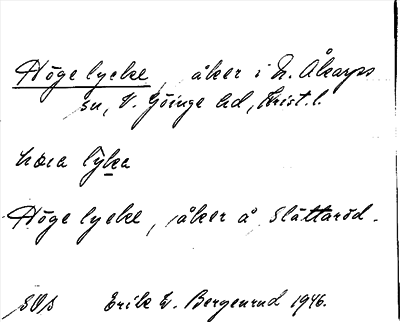 Högelycke, åker i N. Åkarps
sn, V. Göinge hd, Krist. l.
lyka
Höge lycke, åker å Slättaröd.
SOS Erik W. Bergenrud 1946.